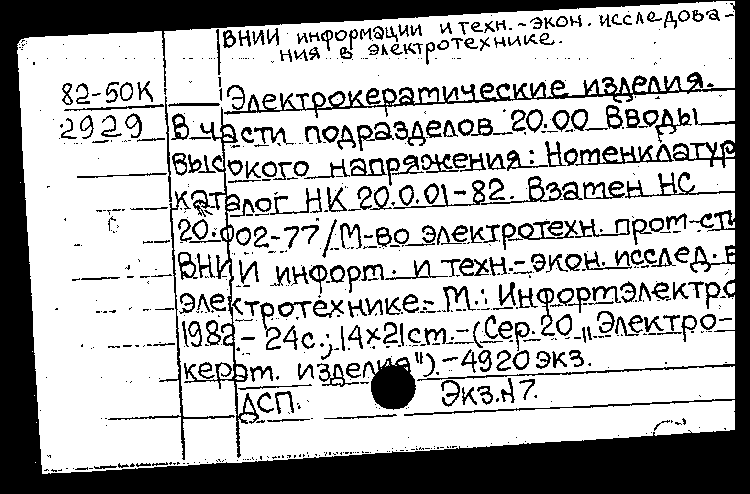 ВНИИ информации и техн.-экон. исследова-
ния в электротехнике.
82-50К
Электрокератические изделия.
2929 В части подразделов 20.00 Вводы
высокого напряжения: Номенклатур
каталог НК 20.0.01-82. Взатен НС
20.002-77/М-во электротехн. прот-сти
ВНИИ инфорт. и техн.-экон. исслед. в
электротехнике.- М.: Инфортэлектро
1982.- 24с.; 14×21ст.-(Сер. 20 „Электро-
керат. изделия").-4920 экз.
ДСП. Экз.N7.